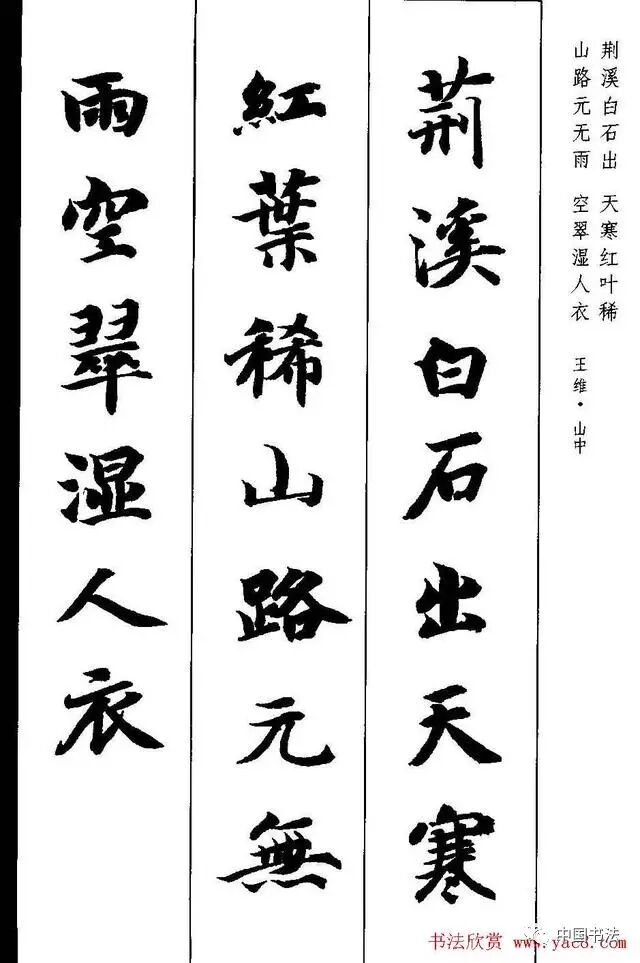 荆溪白石出 天寒红叶稀
山路元无雨 空翠湿人衣 王维·山中
荆溪白石出天寒
紅葉稀山路元無
雨空翠湿人衣
中国书法
书法欣赏 www.yac8.com